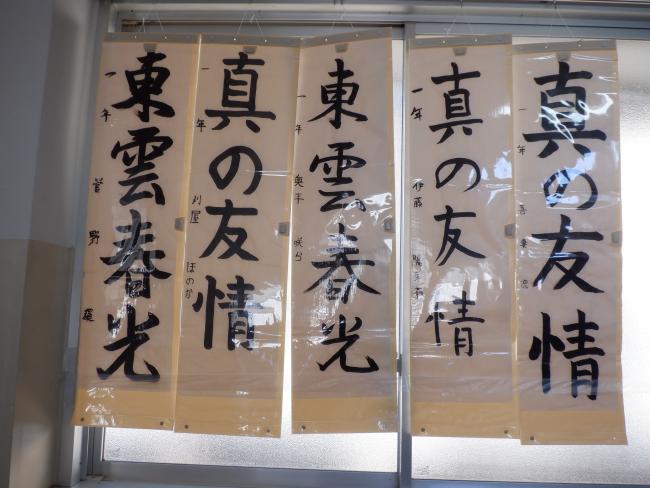 真の友情
一年
真の友情
一年 伊藤
東雲春光
一年 奥平 咲
真の友情
一年 刈屋 ほのか
東雲春光
一年 菅野